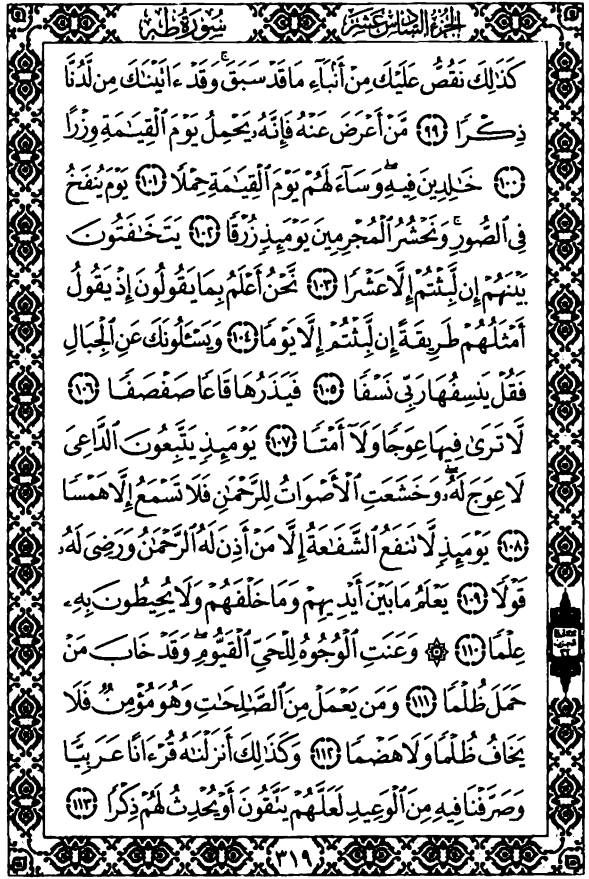 الجزء السادس عشر سورة طه
كَذَٰلِكَ نَقُصُّ عَلَيْكَ مِنْ أَنۢبَآءِ مَا قَدْ سَبَقَ ۚ وَقَدْ ءَاتَيْنَٰكَ مِن لَّدُنَّا
ذِكْرًا ٩٩ مَّنْ أَعْرَضَ عَنْهُ فَإِنَّهُۥ يَحْمِلُ يَوْمَ ٱلْقِيَٰمَةِ وِزْرًا
١٠٠ خَٰلِدِينَ فِيهِ ۖ وَسَآءَ لَهُمْ يَوْمَ ٱلْقِيَٰمَةِ حِمْلًا ١٠١ يَوْمَ يُنفَخُ
فِى ٱلصُّورِ ۚ وَنَحْشُرُ ٱلْمُجْرِمِينَ يَوْمَئِذٍ زُرْقًا ١٠٢ يَتَخَٰفَتُونَ
بَيْنَهُمْ إِن لَّبِثْتُمْ إِلَّا عَشْرًا ١٠٣ نَّحْنُ أَعْلَمُ بِمَا يَقُولُونَ إِذْ يَقُولُ
أَمْثَلُهُمْ طَرِيقَةً إِن لَّبِثْتُمْ إِلَّا يَوْمًا ١٠٤ وَيَسْـَٔلُونَكَ عَنِ ٱلْجِبَالِ
فَقُلْ يَنسِفُهَا رَبِّى نَسْفًا ١٠٥ فَيَذَرُهَا قَاعًا صَفْصَفًا ١٠٦
لَّا تَرَىٰ فِيهَا عِوَجًا وَلَآ أَمْتًا ١٠٧ يَوْمَئِذٍ يَتَّبِعُونَ ٱلدَّاعِىَ
لَا عِوَجَ لَهُۥ ۖ وَخَشَعَتِ ٱلْأَصْوَاتُ لِلرَّحْمَٰنِ فَلَا تَسْمَعُ إِلَّا هَمْسًا
١٠٨ يَوْمَئِذٍ لَّا تَنفَعُ ٱلشَّفَٰعَةُ إِلَّا مَنْ أَذِنَ لَهُ ٱلرَّحْمَٰنُ وَرَضِىَ لَهُۥ
قَوْلًا ١٠٩ يَعْلَمُ مَا بَيْنَ أَيْدِيهِمْ وَمَا خَلْفَهُمْ وَلَا يُحِيطُونَ بِهِۦ
عِلْمًا ١١٠ ۞ وَعَنَتِ ٱلْوُجُوهُ لِلْحَىِّ ٱلْقَيُّومِ ۖ وَقَدْ خَابَ مَنْ
حَمَلَ ظُلْمًا ١١١ وَمَن يَعْمَلْ مِنَ ٱلصَّٰلِحَٰتِ وَهُوَ مُؤْمِنٌ فَلَا
يَخَافُ ظُلْمًا وَلَا هَضْمًا ١١٢ وَكَذَٰلِكَ أَنزَلْنَٰهُ قُرْءَانًا عَرَبِيًّا
وَصَرَّفْنَا فِيهِ مِنَ ٱلْوَعِيدِ لَعَلَّهُمْ يَتَّقُونَ أَوْ يُحْدِثُ لَهُمْ ذِكْرًا ١١٣
٣١٩